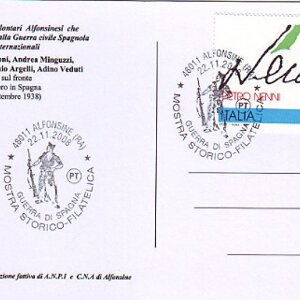 olontari Alfonsinesi che
alla Guerra civile Spagnola
nternazionali
oni, Andrea Minguzzi,
io Argelli, Adino Veduti
sul fronte
ero in Spagna
ttembre 1938)
PIETRO NENNI
ITALIA
* 48011 ALFONSINE (RA) *
22.11.2008
PT
GUERRA DI SPAGNA
MOSTRA STORICO-FILATELICA
* 48011 ALFONSINE (RA) *
22.11.2008
PT
GUERRA DI SPAGNA
MOSTRA STORICO-FILATELICA
zione fattiva di A.N.P.I e C.N.A di Alfonsine